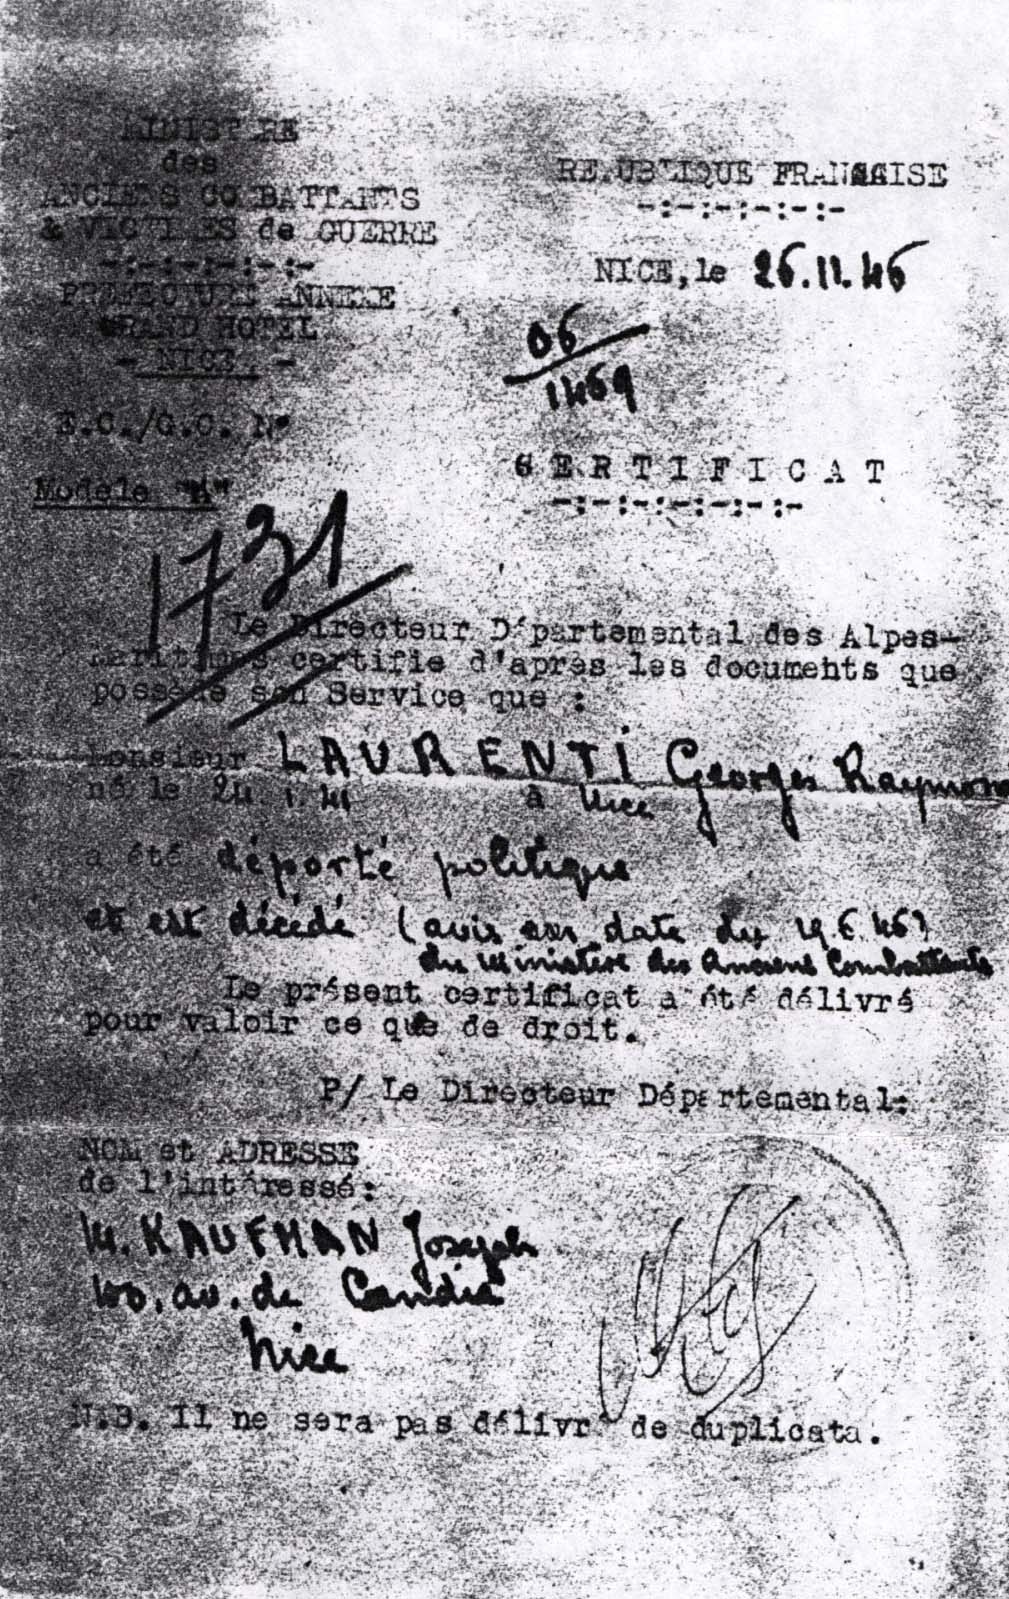 MINISTERE
des
ANCIENS COMBATTANTS
& VICTIMES de GUERRE
-:-:-:-:-:-
PREFECTURE ANNEXE
GRAND HOTEL
- NICE -
E.C./G.C. N°
Modèle "A"
1731
REPUBLIQUE FRANCAISE
-:-:-:-:-:-
NICE, le 26.11.46
06/1469
CERTIFICAT
-:-:-:-:-:-:-
Le Directeur Départemental des Alpes-
Maritimes certifie d'après les documents que
possède son Service que :
Monsieur LAURENTI Georges Raymond
né le 24.1.41 à Nice
a été déporté politique
et est décédé (avis en date du 19.6.46)
du Ministère des Anciens Combattants
Le présent certificat a été délivré
pour valoir ce que de droit.
P/ Le Directeur Départemental:
NOM et ADRESSE
de l'intéressé:
M. KAUFMAN Joseph
av. de Candia
Nice
N.B. Il ne sera pas délivré de duplicata.